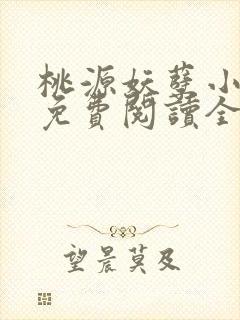 桃源妖孽小
免費閱讀全
望晨莫及